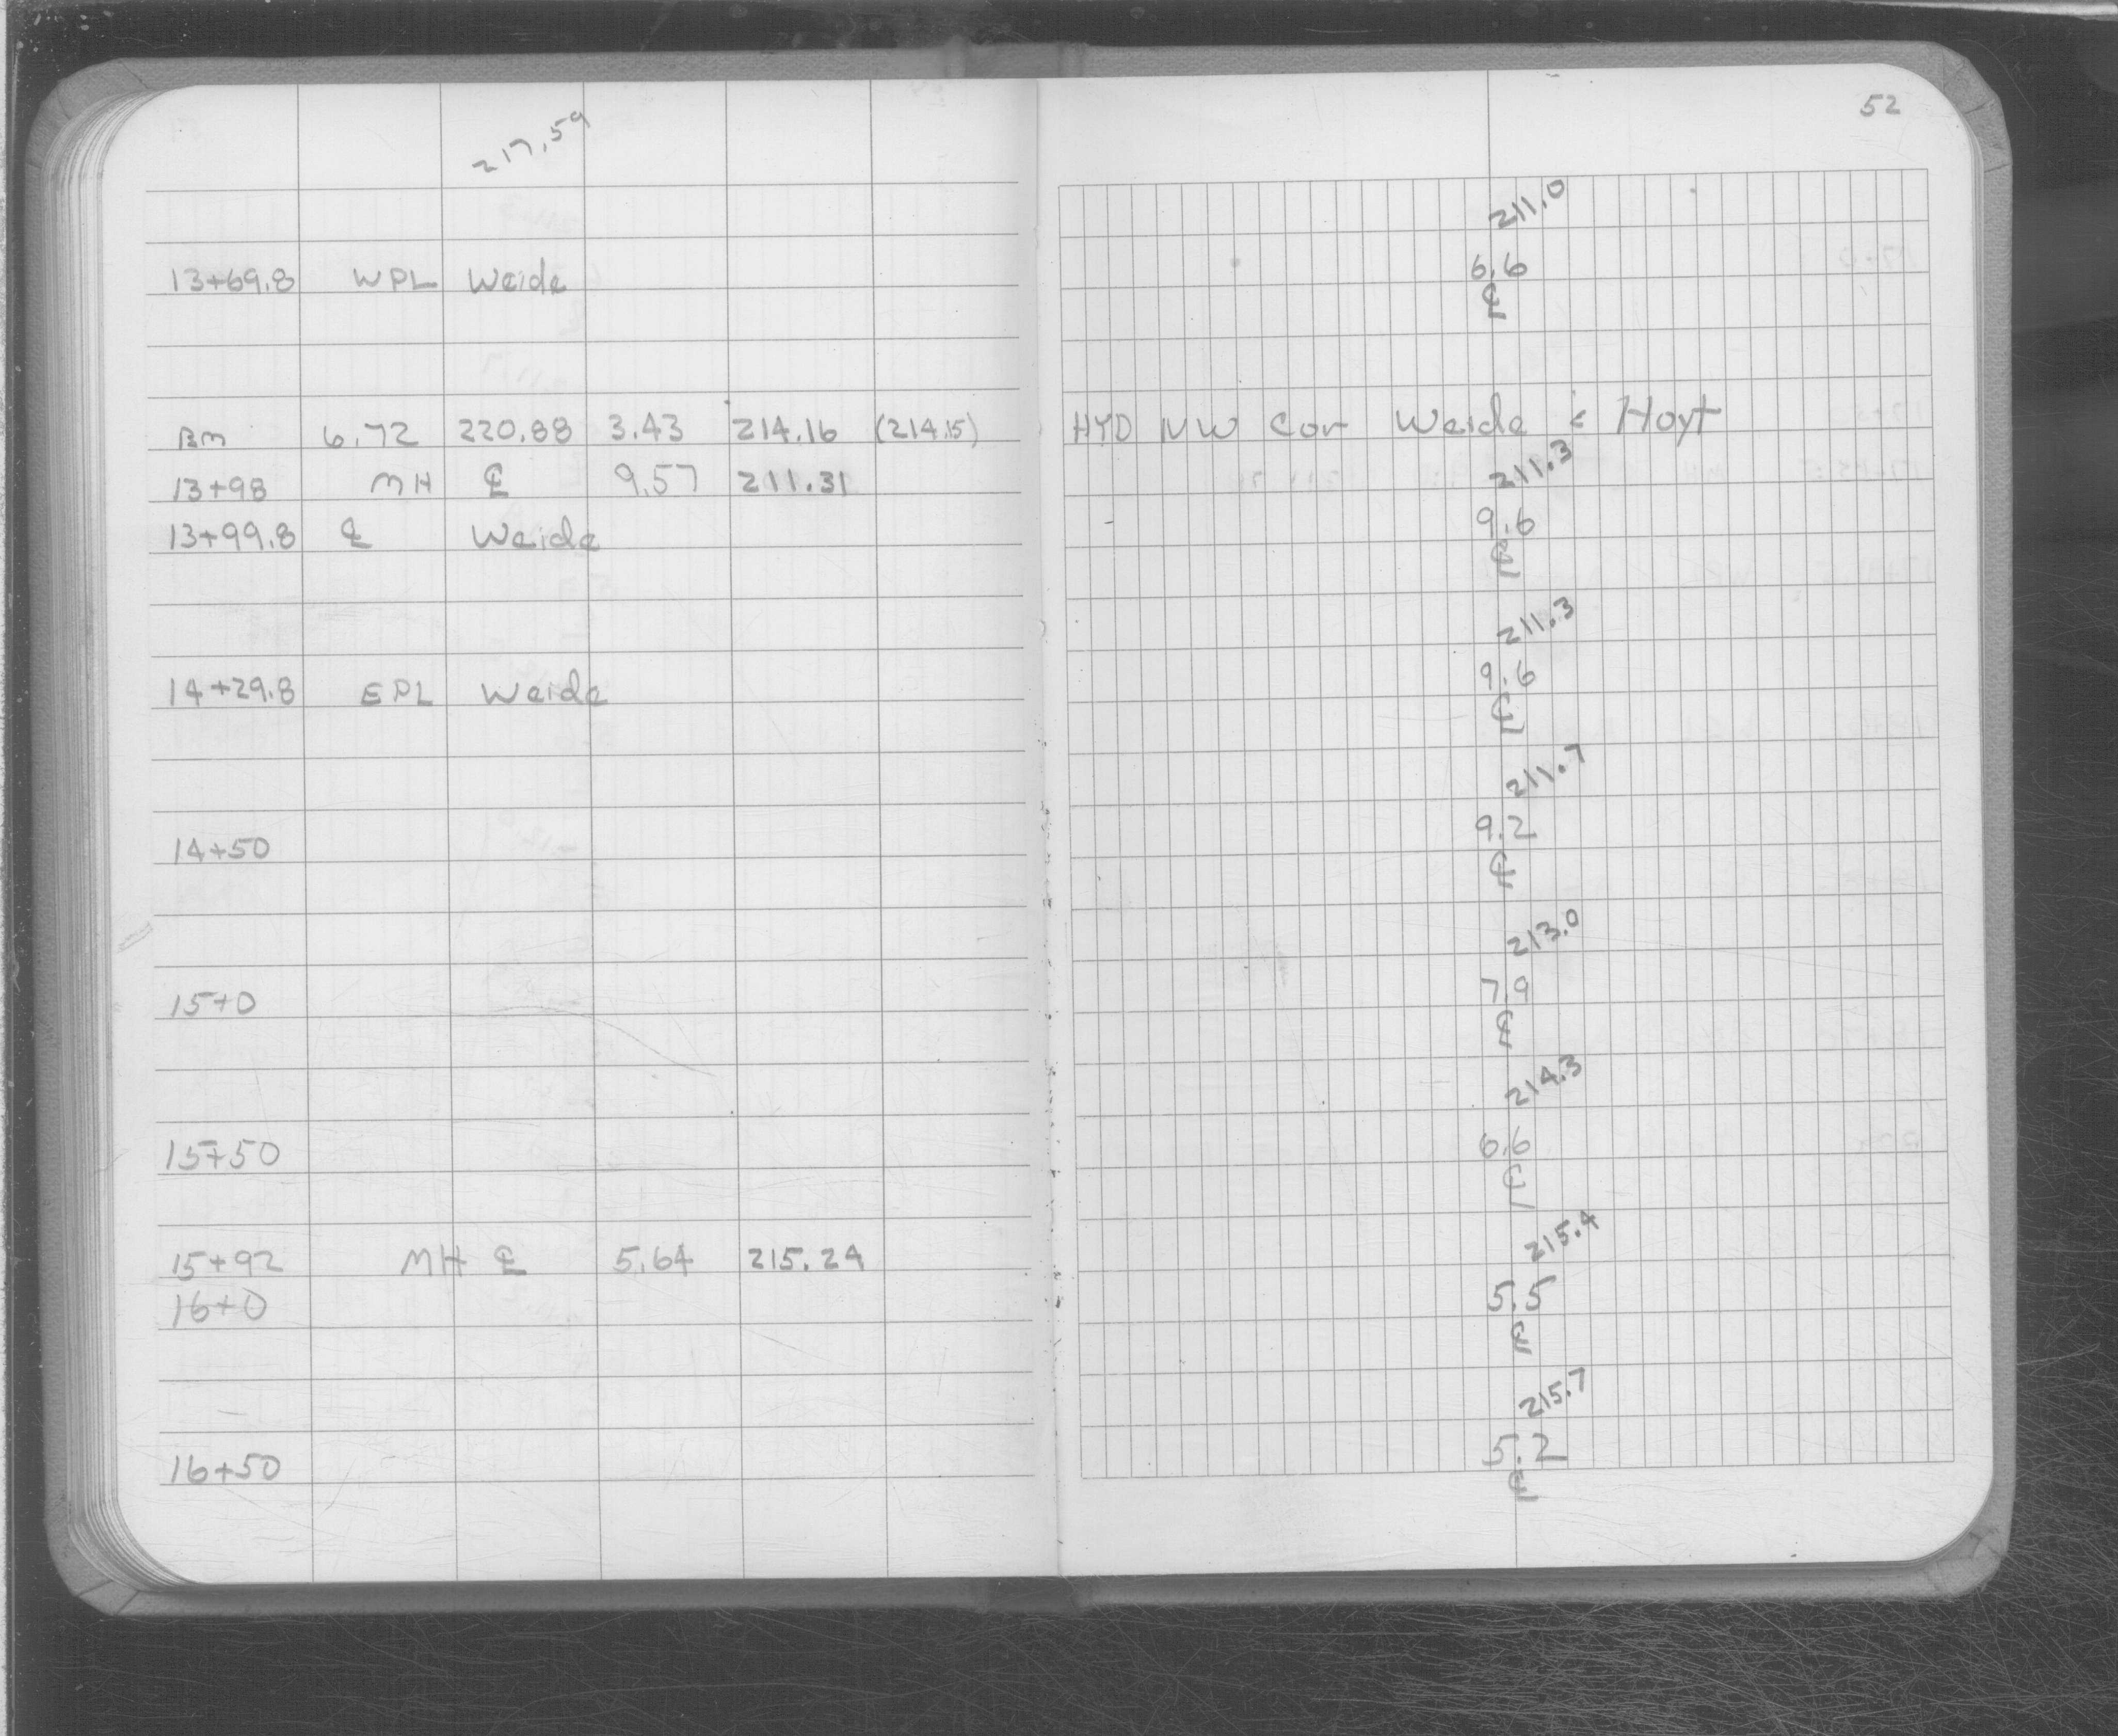 52
217.59
211.0
13+69.8 WPL Weide 6.6
℄
BM 6.72 220.88 3.43 214.16 (214.15) HYD NW Cor Weide & Hoyt
13+98 MH ℄ 9.57 211.31 211.3
13+99.8 ℄ Weide 9.6
℄
211.3
14+29.8 EPL Weide 9.6
℄
211.7
14+50 9.2
℄
213.0
15+0 7.9
℄
214.3
15+50 6.6
℄
15+92 MH ℄ 5.64 215.24 215.4
16+0 5.5
℄
215.7
16+50 5.2
℄